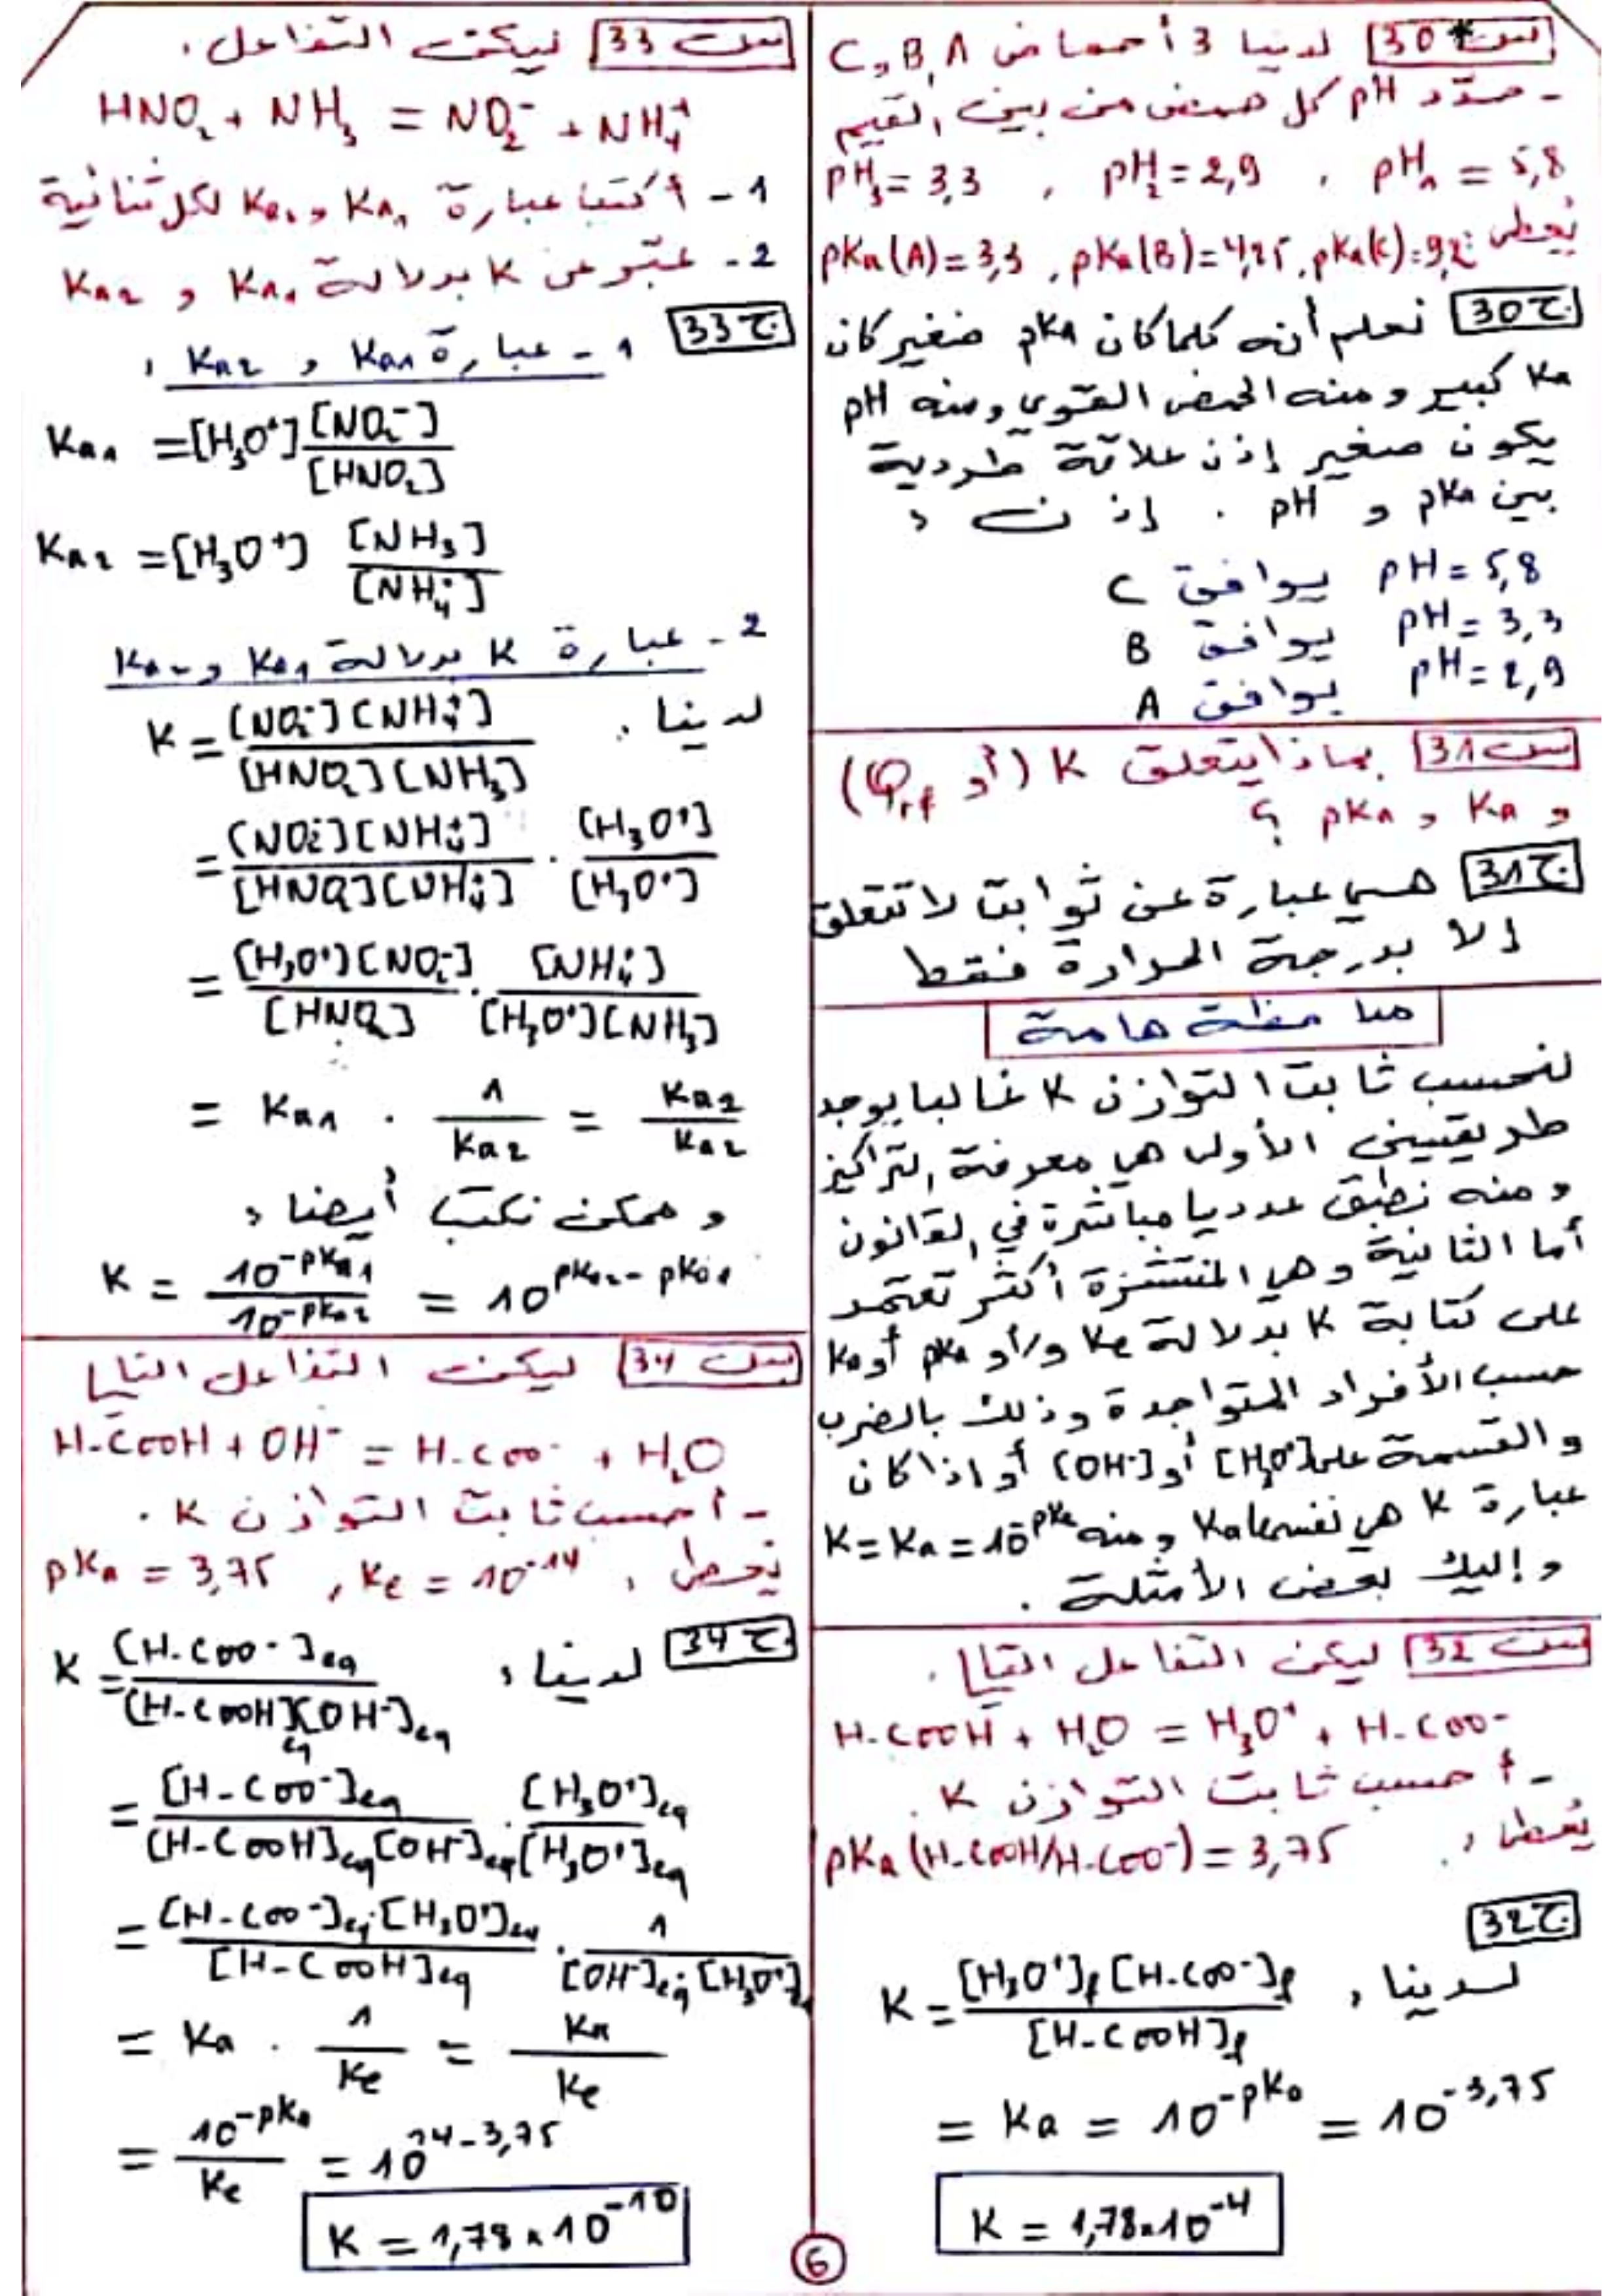 س30* لدينا 3 أحماض A, B و C
- حدّد pH كل حمض من بين القيم
pH₁ = 5,8 , pH₂ = 2,9 , pH₃ = 3,3
يُعطى: pKa(A) = 3,3 , pKa(B) = 4,25 , pKa(C) = 9,2
ج30 نعلم أنه كلما كان pKa صغير كان
Ka كبير ومنه الحمض القوي ومنه pH
يكون صغير إذن علاقة طردية
بين pKa و pH . إذن :
pH = 5,8 يوافق C
pH = 3,3 يوافق B
pH = 2,9 يوافق A
س31 بماذا يتعلق K (أو Qrf)
و Ka و pKa ؟
ج31 هي عبارة عن ثوابت لا تتعلق
إلا بدرجة الحرارة فقط
ملاحظة هامة
لنحسب ثابت التوازن K غالبا يوجد
طريقتين الأولى هي معرفة التراكيز
ومنه نطبق عدديا مباشرة في القانون
أما الثانية وهي المنتشرة أكثر تعتمد
على كتابة K بدلالة Ke و/أو pKa أو Ka
حسب الأفراد المتواجدة وذلك بالضرب
والقسمة على [H₃O⁺] أو [OH⁻] أو إذا كان
عبارة K هي نفسها Ka ومنه K = Ka = 10^-pKa
وإليك بعض الأمثلة .
س32 ليكن التفاعل التالي .
H-COOH + H₂O = H₃O⁺ + H-COO⁻
- أحسب ثابت التوازن K .
يُعطى : pKa (H-COOH/H-COO⁻) = 3,75
ج32
لدينا : K = [H₃O⁺]f [H-COO⁻]f / [H-COOH]f
= Ka = 10^-pKa = 10^-3,75
K = 1,78.10⁻⁴
س33 ليكن التفاعل .
HNO₂ + NH₃ = NO₂⁻ + NH₄⁺
1 - أكتب عبارة Ka₁ و Ka₂ لكل ثنائية
2 - عبّر عن K بدلالة Ka₁ و Ka₂
ج33 1 - عبارة Ka1 و Ka2 :
Ka₁ = [H₃O⁺] [NO₂⁻] / [HNO₂]
Ka₂ = [H₃O⁺] [NH₃] / [NH₄⁺]
2 - عبارة K بدلالة Ka1 و Ka2
لدينا . K = [NO₂⁻][NH₄⁺] / [HNO₂][NH₃]
= [NO₂⁻][NH₄⁺] / [HNO₂][NH₄⁺] . [H₃O⁺] / [H₃O⁺]
= [H₃O⁺][NO₂⁻] / [HNO₂] . [NH₄⁺] / [H₃O⁺][NH₃]
= Ka1 . 1 / Ka2 = Ka2 / Ka2
وممكن نكتب أيضا :
K = 10^-pKa1 / 10^-pKa2 = 10^pKa2 - pKa1
س34 ليكن التفاعل التالي
H-COOH + OH⁻ = H-COO⁻ + H₂O
- أحسب ثابت التوازن K .
يُعطى : Ke = 10⁻¹⁴ , pKa = 3,75
ج34 لدينا : K = [H-COO⁻]eq / [H-COOH]eq[OH⁻]eq
= [H-COO⁻]eq / [H-COOH]eq[OH⁻]eq . [H₃O⁺]eq / [H₃O⁺]eq
= [H-COO⁻]eq.[H₃O⁺]eq / [H-COOH]eq . 1 / [OH⁻]eq.[H₃O⁺]
= Ka . 1 / Ke = Ka / Ke
= 10^-pKa / Ke = 10^14-3,75
K = 1,78 × 10⁻¹⁰
6